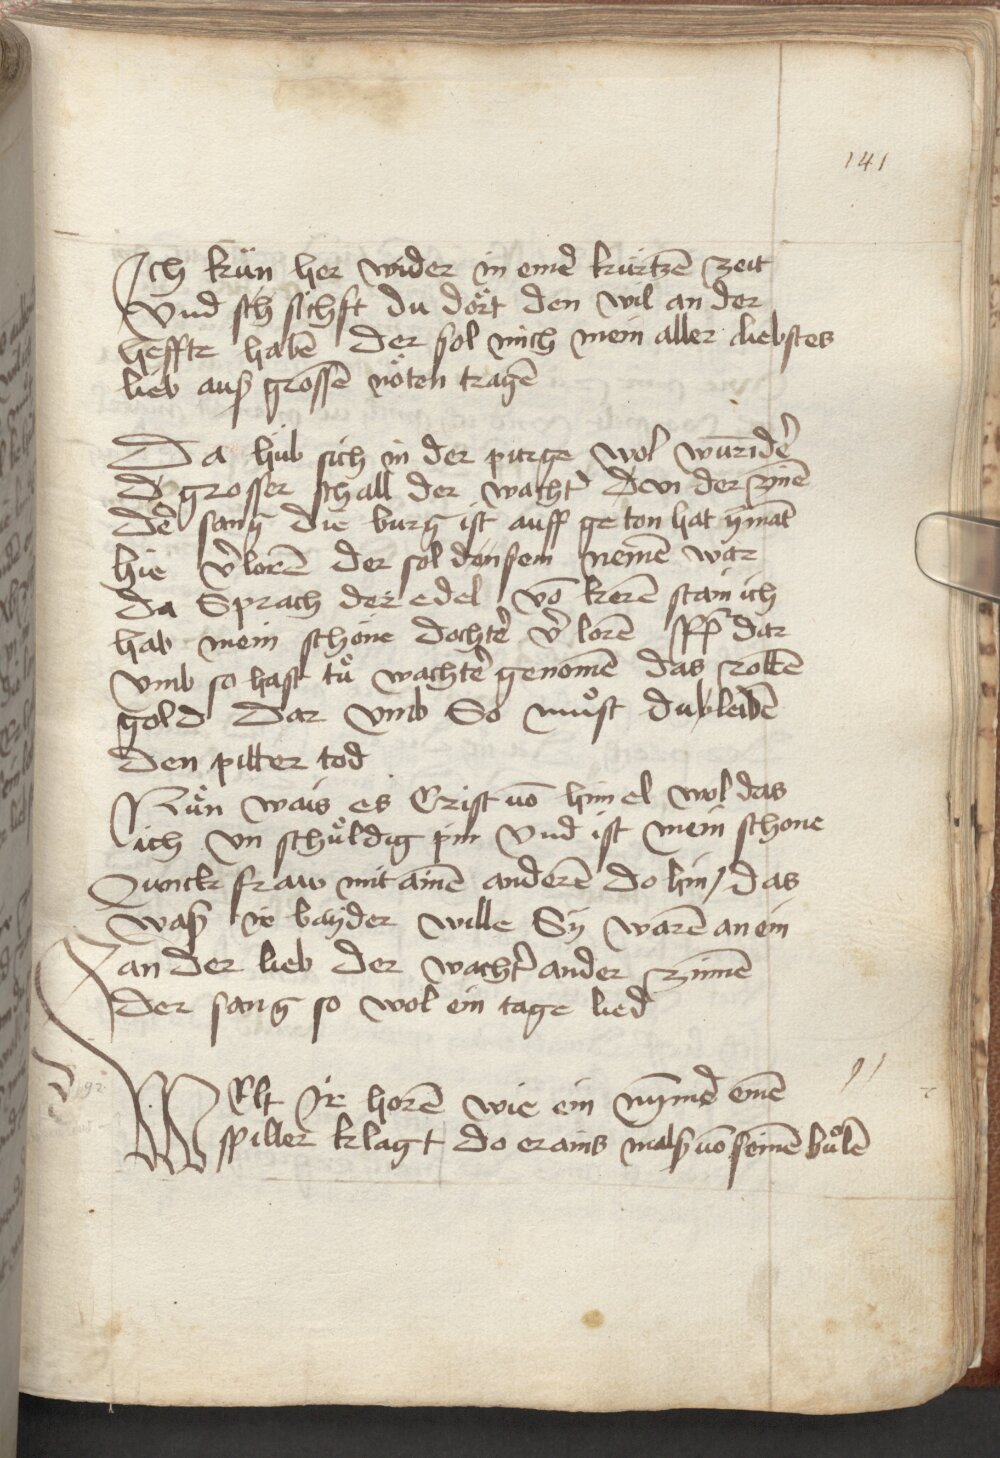 141
Ich kün her wider in eine͛ kürtzē zeit
Vnd sch sichst du dört den wil an der
heffte habē der sol mich mein aller liebstes
lieb auß grossē nöten tragē
Da hüb sich in der purge wol
d grosser schall der wacht͛ der zinē
de͛ sang die burg ist auff ge ton hat ymāt
hie v͛lorē der sol nemē war
Da Sprach der edel vō kerē stain ich
hab mein schöne dochte͛ v͛ lorē dar
vmb so hast tů wachte͛ genomē das rottē
gold Dar vmb So můst du leidē
den pitter tod
Nůn wais es Crist vō himel wol das
ich vn schůldig pin Vnd ist mein schone
Junckfraw mit ainē anderē do hin / das
waß ir bayder wille Sy warē an ein
ander lieb der wacht͛ an der zinnē
der sang so wol ein tage lied
91
WElt Ir horē wie ein einē
spiller klagt do er ains malß vō seinē bůlē